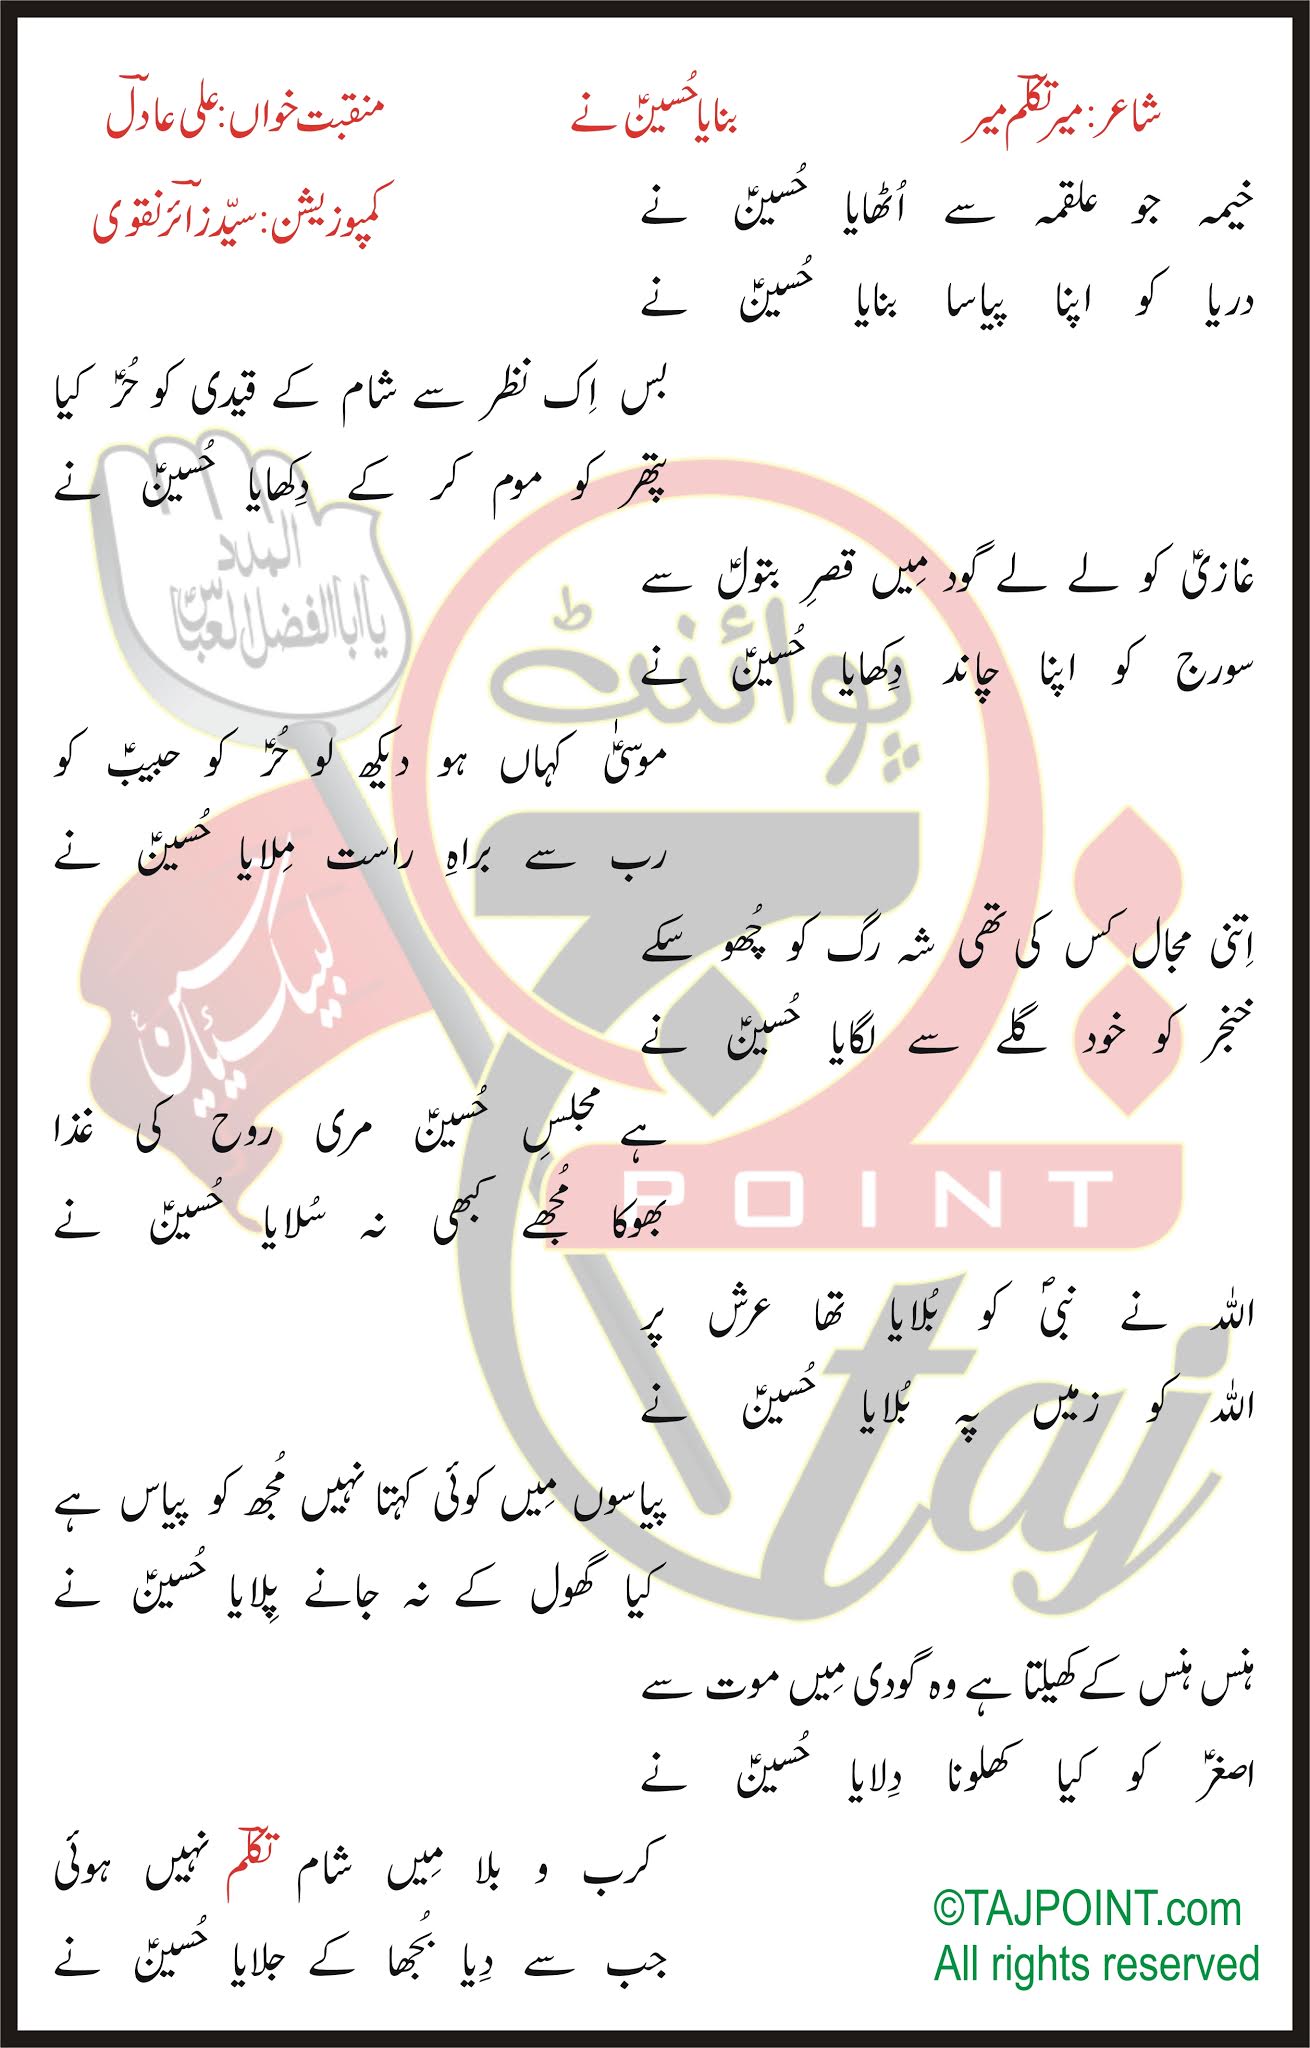 شاعر: میر تکلّم میر
بنایا حُسینؑ نے
منقبت خواں: علی عادل
کمپوزیشن: سیّد زائر نقوی
خیمہ جو علقمہ سے اُٹھایا حُسینؑ نے
دریا کو اپنا پیاسا بنایا حُسینؑ نے
بس اِک نظر سے شام کے قیدی کو حُرؑ کیا
پتھر کو موم کر کے دِکھایا حُسینؑ نے
غازیؑ کو لے لے گود مِیں قصرِ بتولؑ سے
سورج کو اپنا چاند دِکھایا حُسینؑ نے
موسیٰؑ کہاں ہو دیکھ لو حُرؑ کو حبیبؑ کو
رب سے براہِ راست مِلایا حُسینؑ نے
اِتنی مجال کس کی تھی شہ رگ کو چُھو سکے
خنجر کو خود گلے سے لگایا حُسینؑ نے
ہے مجلسِ حُسینؑ مری روح کی غذا
بھوکا مُجھے کبھی نہ سُلایا حُسینؑ نے
اللہ نے نبیؐ کو بُلایا تھا عرش پر
اللہ کو زمیں پہ بُلایا حُسینؑ نے
پیاسوں مِیں کوئی کہتا نہیں مُجھ کو پیاس ہے
کیا گھول کے نہ جانے پِلایا حُسینؑ نے
ہنس ہنس کے کھیلتا ہے وہ گودی مِیں موت سے
اصغرؑ کو کیا کھلونا دِلایا حُسینؑ نے
کرب و بلا مِیں شام تکلّم نہیں ہوئی
جب سے دِیا بُجھا کے جلایا حُسینؑ نے
©TAJPOINT.com
All rights reserved
المدد
یا ابا الفضل العباسؑ
لبیک یا حسینؑ
پوائنٹ
تاج
POINT
taj